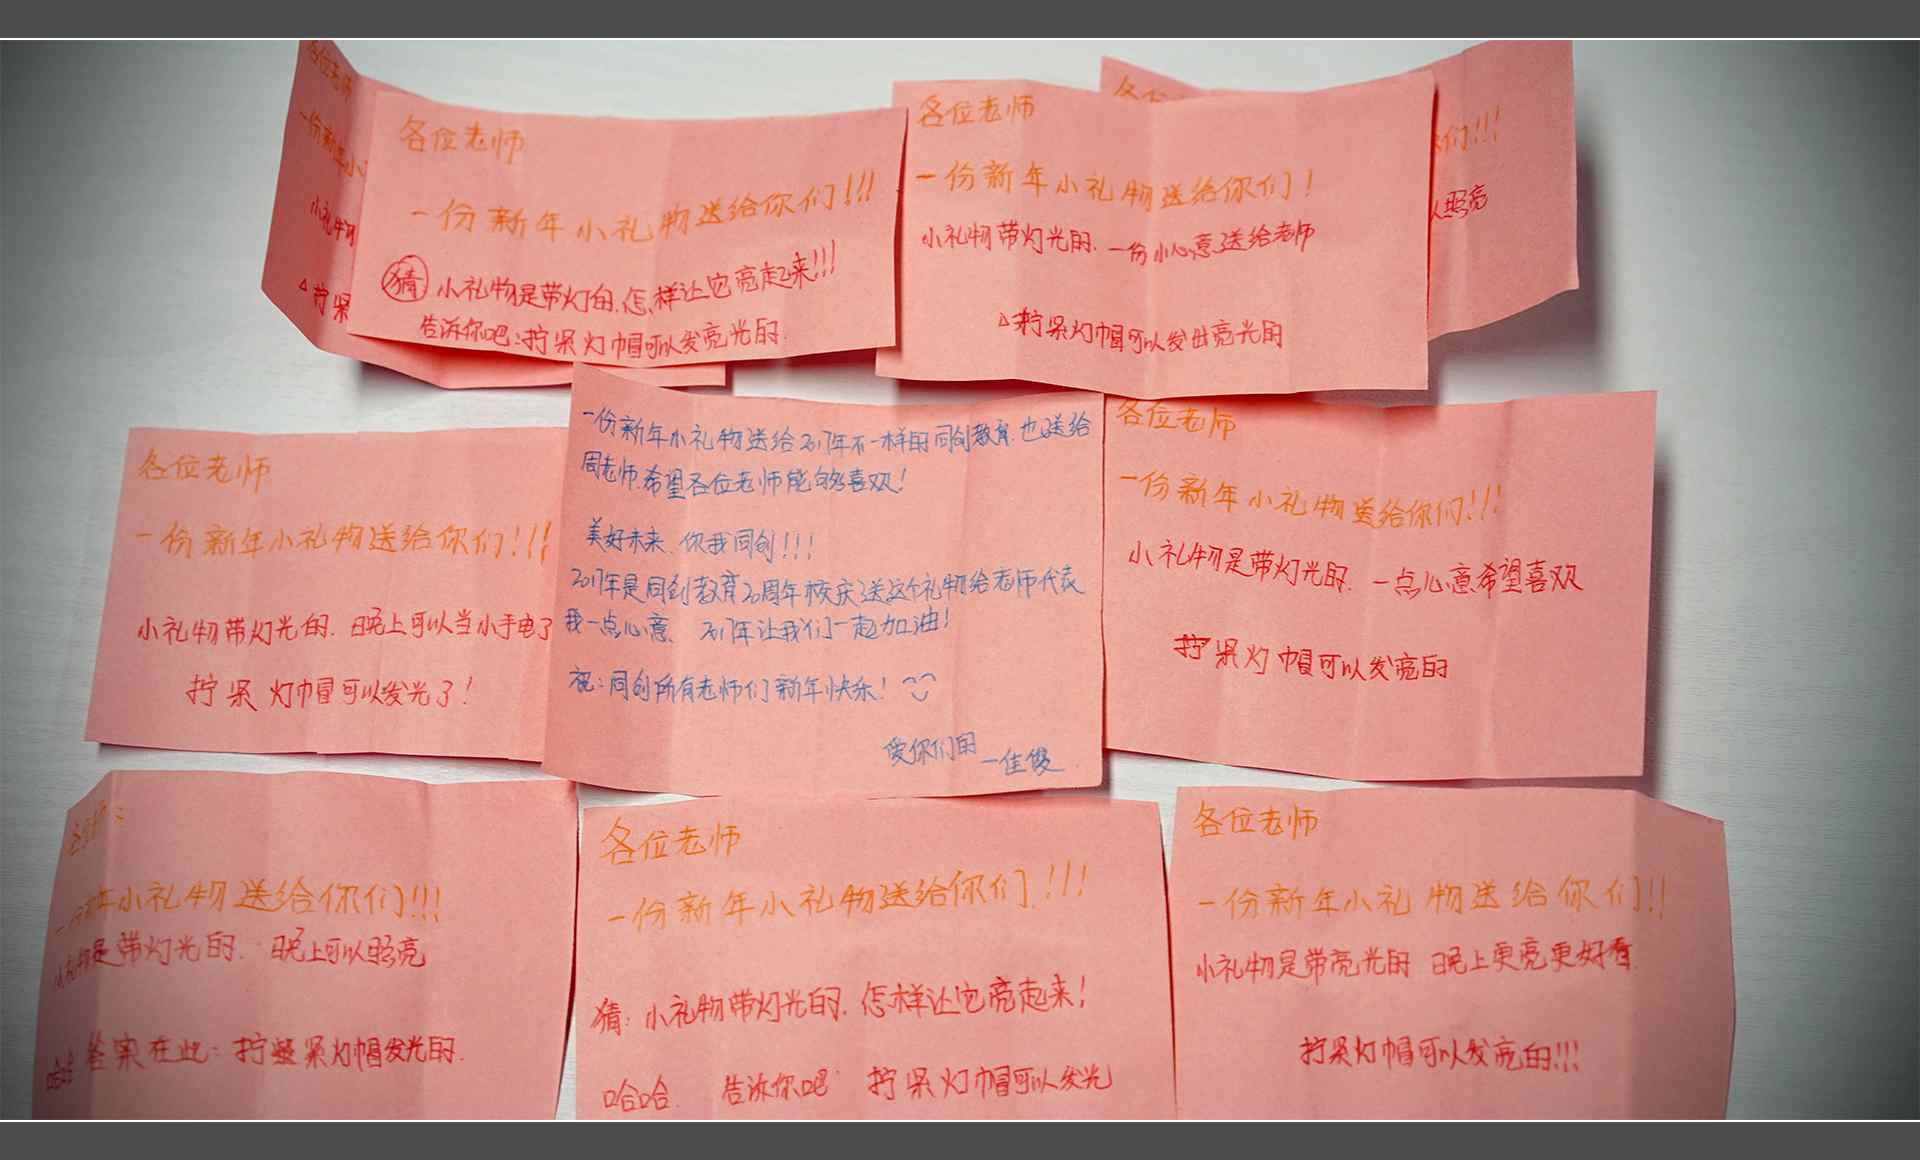 各位老师
一份新年小
小礼物
△拧紧
各位老师
一份新年小礼物送给你们!!!
猜 小礼物是带灯的.怎样让它亮起来!!!
告诉你吧:拧紧灯帽可以发亮光的.
各位老师
一份新年小礼物送给你们!
小礼物带灯光的.一份小心意送给老师
△拧紧灯帽可以发出亮光的
各位
你们!!!
以照亮
各位老师
一份新年小礼物送给你们!!!
小礼物带灯光的.晚上可以当小手电了
拧紧灯帽可以发光了!
一份新年小礼物送给2017年不一样的同创教育.也送给
周老师.希望各位老师能够喜欢!
美好未来.你我同创!!!
2017年是同创教育20周年校庆送这个礼物给老师代表
我一点心意. 2017年让我们一起加油!
祝:同创所有老师们新年快乐!
爱你们的
一佳俊
各位老师
一份新年小礼物送给你们!!!
小礼物是带灯光的.一点心意希望喜欢
拧紧灯帽可以发亮的
一份新年小礼物送给你们!!!
小礼物是带灯光的. 晚上可以照亮
哈哈 答案在此:拧紧灯帽发光的.
各位老师
一份新年小礼物送给你们!!!
猜:小礼物带灯光的.怎样让它亮起来!
哈哈. 告诉你吧 拧紧灯帽可以发光
各位老师
一份新年小礼物送给你们!!
小礼物是带亮光的 晚上更亮更好看.
拧紧灯帽可以发亮的!!!